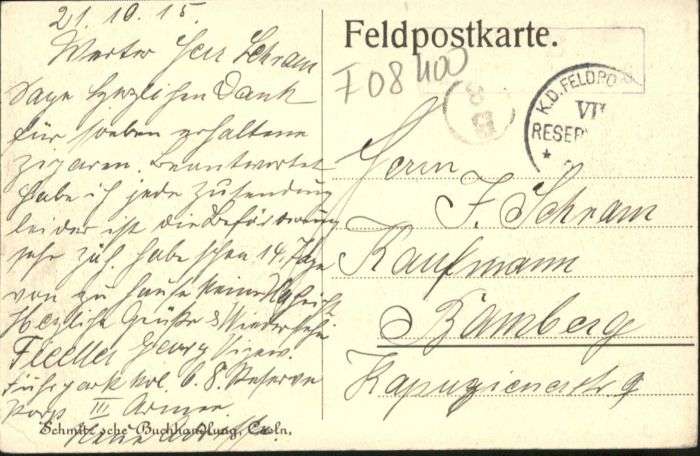 21.10.15.
Werter Herr Schram
Sage herzlichen Dank
für soeben erhaltene
Zigaren. Beantwortet
habe ich jede Zusendung
leider ist die Beförderung
sehr zäh. habe schon 14. Tage
von zu Hause keine
Herzliche Grüße & Wiedersehn
Fiedler Georg
Fuhrparkkol. 6. 8. Reserve
Korp III Armee.
Schmitz'sche Buchhandlung, Cöln.
Feldpostkarte.
F 08 400
K.D. FELDPO
VII
RESER
Herrn
F. Schram
Kaufmann
Bamberg
Kapuzienerstr 9